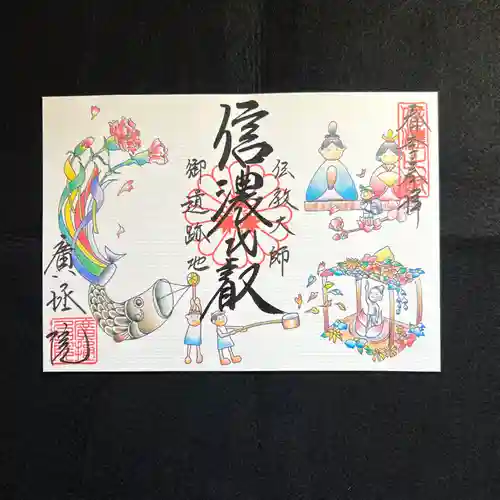 奉拝
伝教大師
信濃比叡
御遺跡地
廣拯院